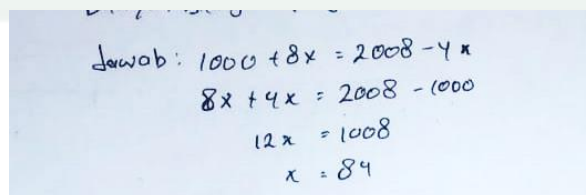 Jawab : 1000 + 8x = 2008 - 4x
8x + 4x = 2008 - 1000
12x = 1008
x = 84